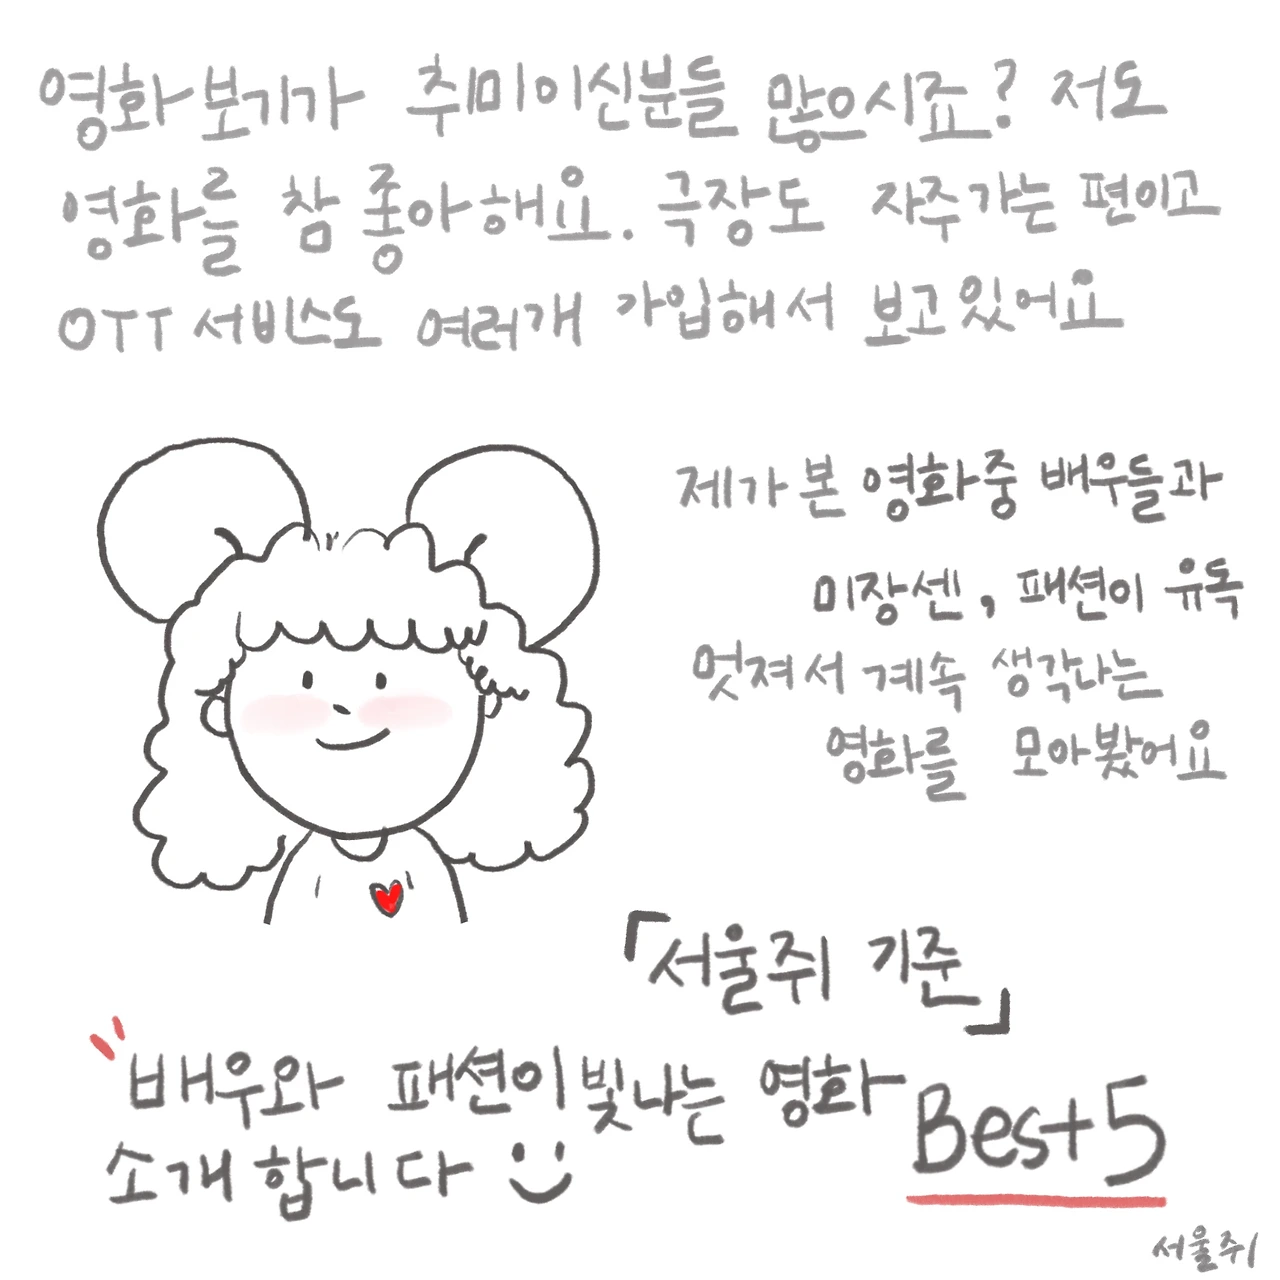 영화보기가 취미이신분들 많으시죠? 저도
영화를 참 좋아해요. 극장도 자주가는 편이고
OTT 서비스도 여러개 가입해서 보고있어요
제가 본 영화중 배우들과
미장센, 패션이 유독
멋져서 계속 생각나는
영화를 모아봤어요
「서울쥐 기준」
배우와 패션이 빛나는 영화 Best 5
소개합니다
서울쥐